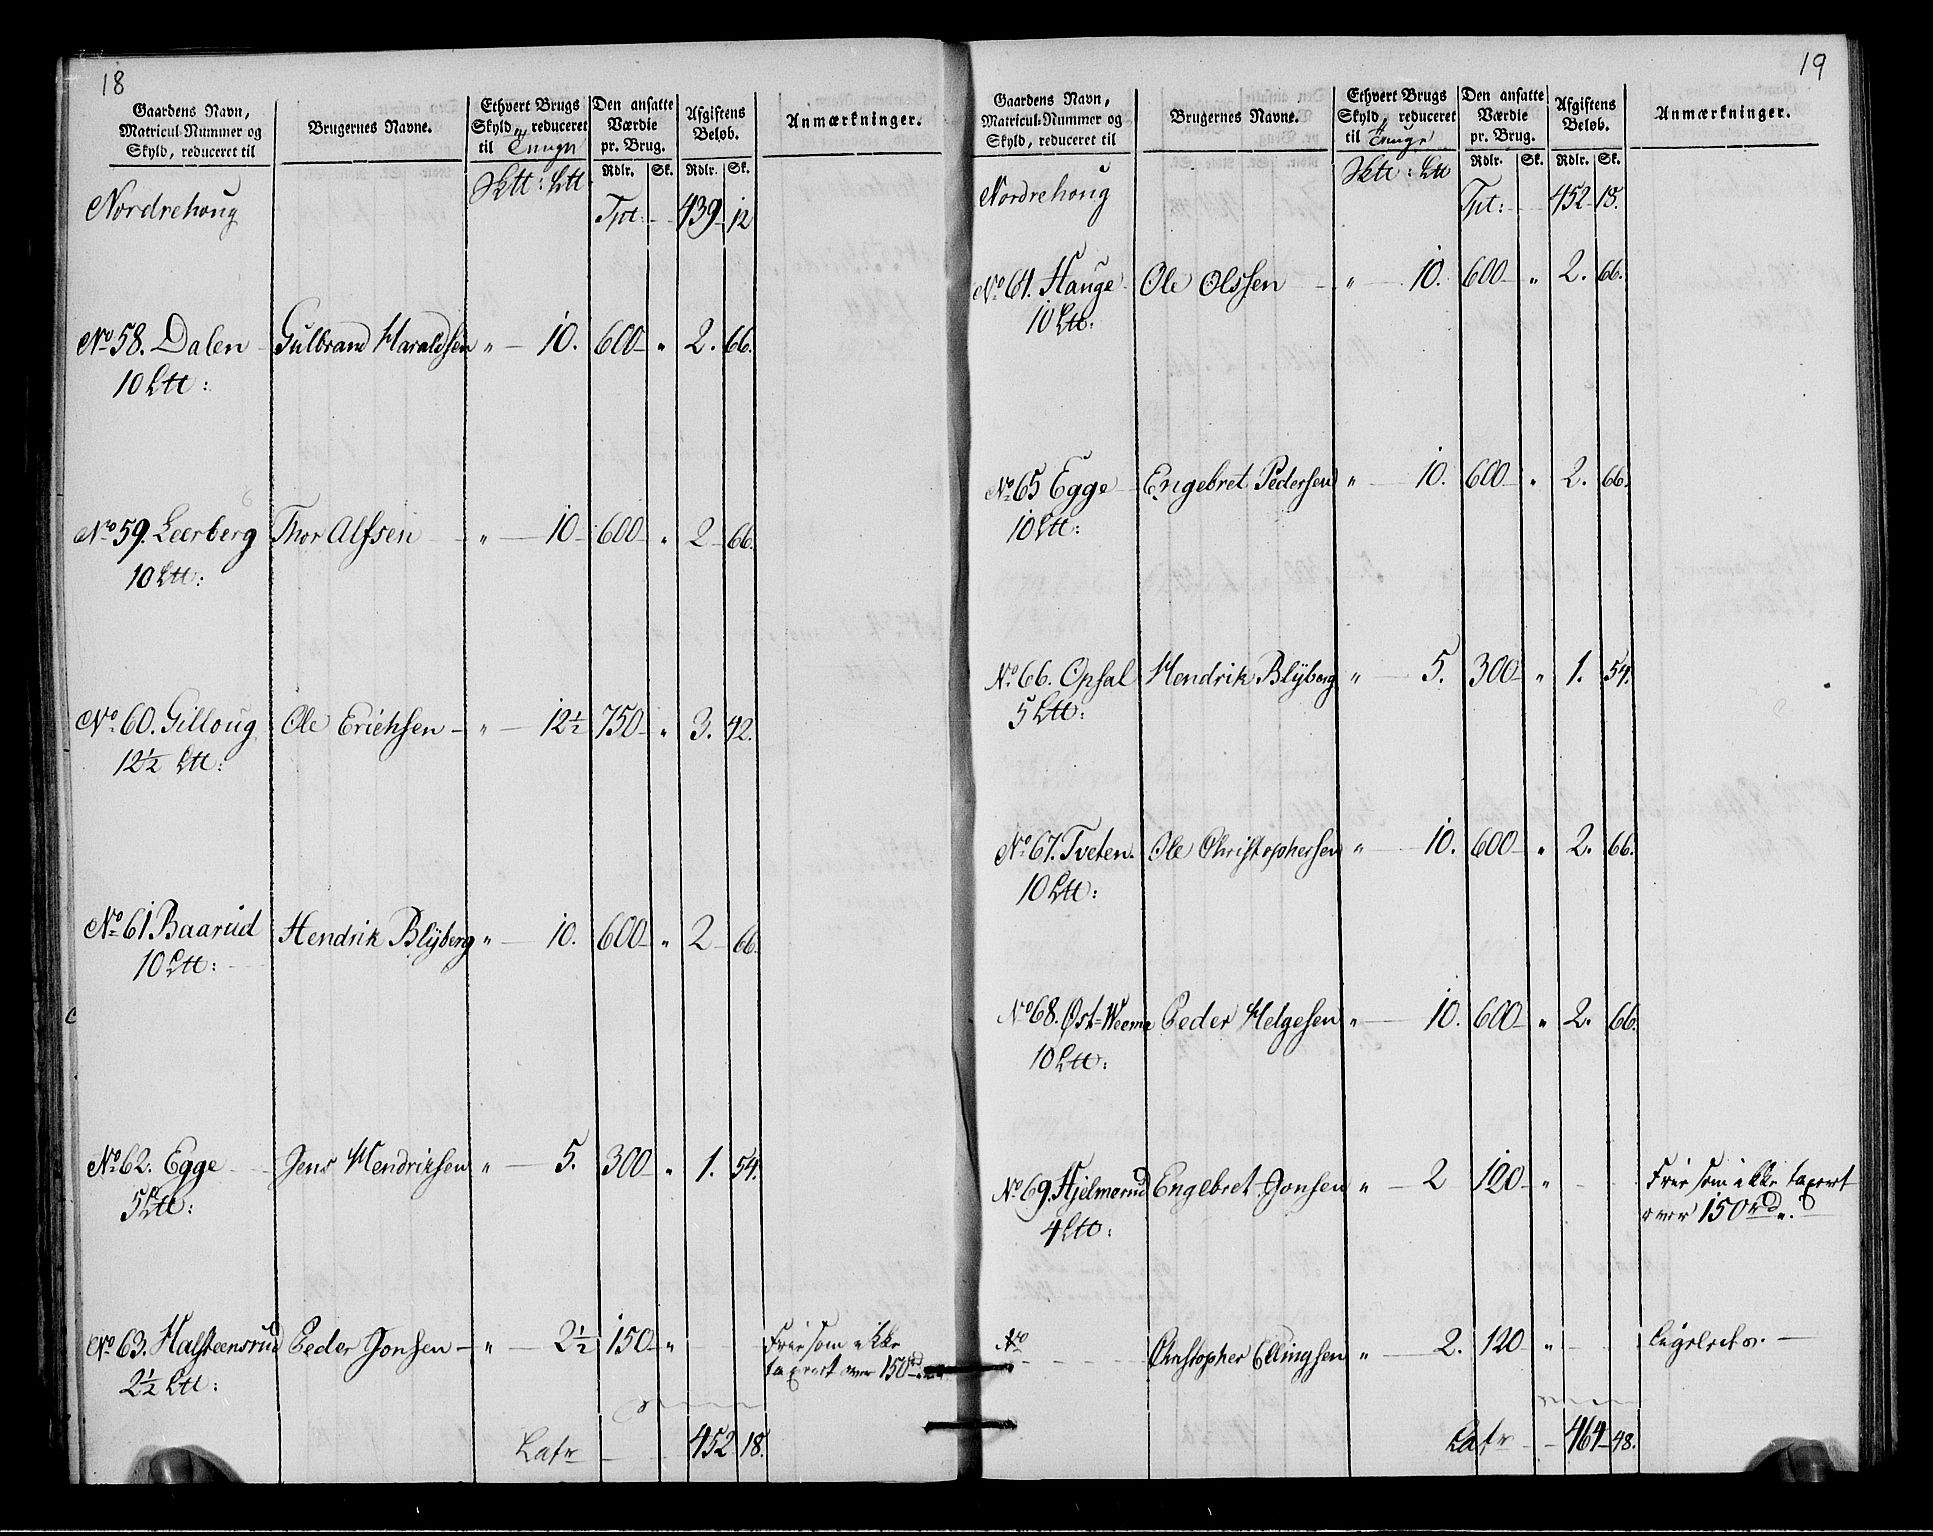 18
Gaardens Navn, Matricul-Nummer og Skyld, reduceret til | Brugernes Navne. | Ethvert Brugs Skyld, reduceret til Tunge | Den ansatte Værdie pr. Brug. | Afgiftens Beløb. | Anmærkninger.
Rdlr. | Sk. | Rdlr. | Sk.
Nordrehoug | Tpt: 439 12
No 58. Dalen | Gulbrand Haraldsen | " 10. | 600 | " | 2. | 66.
10 Ltt:
No 59. Leerberg | Thor Alfsen | " 10 | 600 | " | 2 | 66.
10 Ltt:
No 60. Gilloug | Ole Erichsen | " 12½ | 750 | " | 3. | 42.
12½ Ltt:
No 61 Baarud | Hendrik Blÿberg | " 10. | 600 | " | 2 | 66.
10 Ltt:
No 62. Egge | Jens Hendriksen | " 5. | 300 | " | 1. | 54.
5 Ltt:
No 63. Halsteensrud | Peder Jonsen | " 2½ | 150 | " | Frie som ikke
2½ Ltt: | taxeret over 150rd
Latr | 452 | 18.
19
Gaardens Navn, Matricul-Nummer og Skyld, reduceret til | Brugernes Navne. | Ethvert Brugs Skyld, reduceret til Tunge | Den ansatte Værdie pr. Brug. | Afgiftens Beløb. | Anmærkninger.
Rdlr. | Sk. | Rdlr. | Sk.
Nordrehoug | Tpt: 452 18.
No 64. Hauge | Ole Olssen | " 10. | 600 | " | 2. | 66.
10 Ltt:
No 65 Egge | Engebret Pedersen | " 10. | 600 | " | 2. | 66.
10 Ltt:
No 66. Opsal | Hendrik Blÿberg | " 5. | 300 | " | 1. | 54.
5 Ltt:
No 67. Tveten. | Ole Christophersen | " 10. | 600 | " | 2. | 66.
10 Ltt:
No 68. Øst=Weeme | Peder Helgesen | " 10. | 600 | " | 2. | 66.
10 Ltt:
No 69. Hjelmerud | Engebret Jonsen | " 2 | 120 | " | Frie som ikke taxeret
4 Ltt: | over 150rd.
No | Christopher Ellingsen | " 2. | 120 | " | Ligeledes.
Latr | 464 | 48.